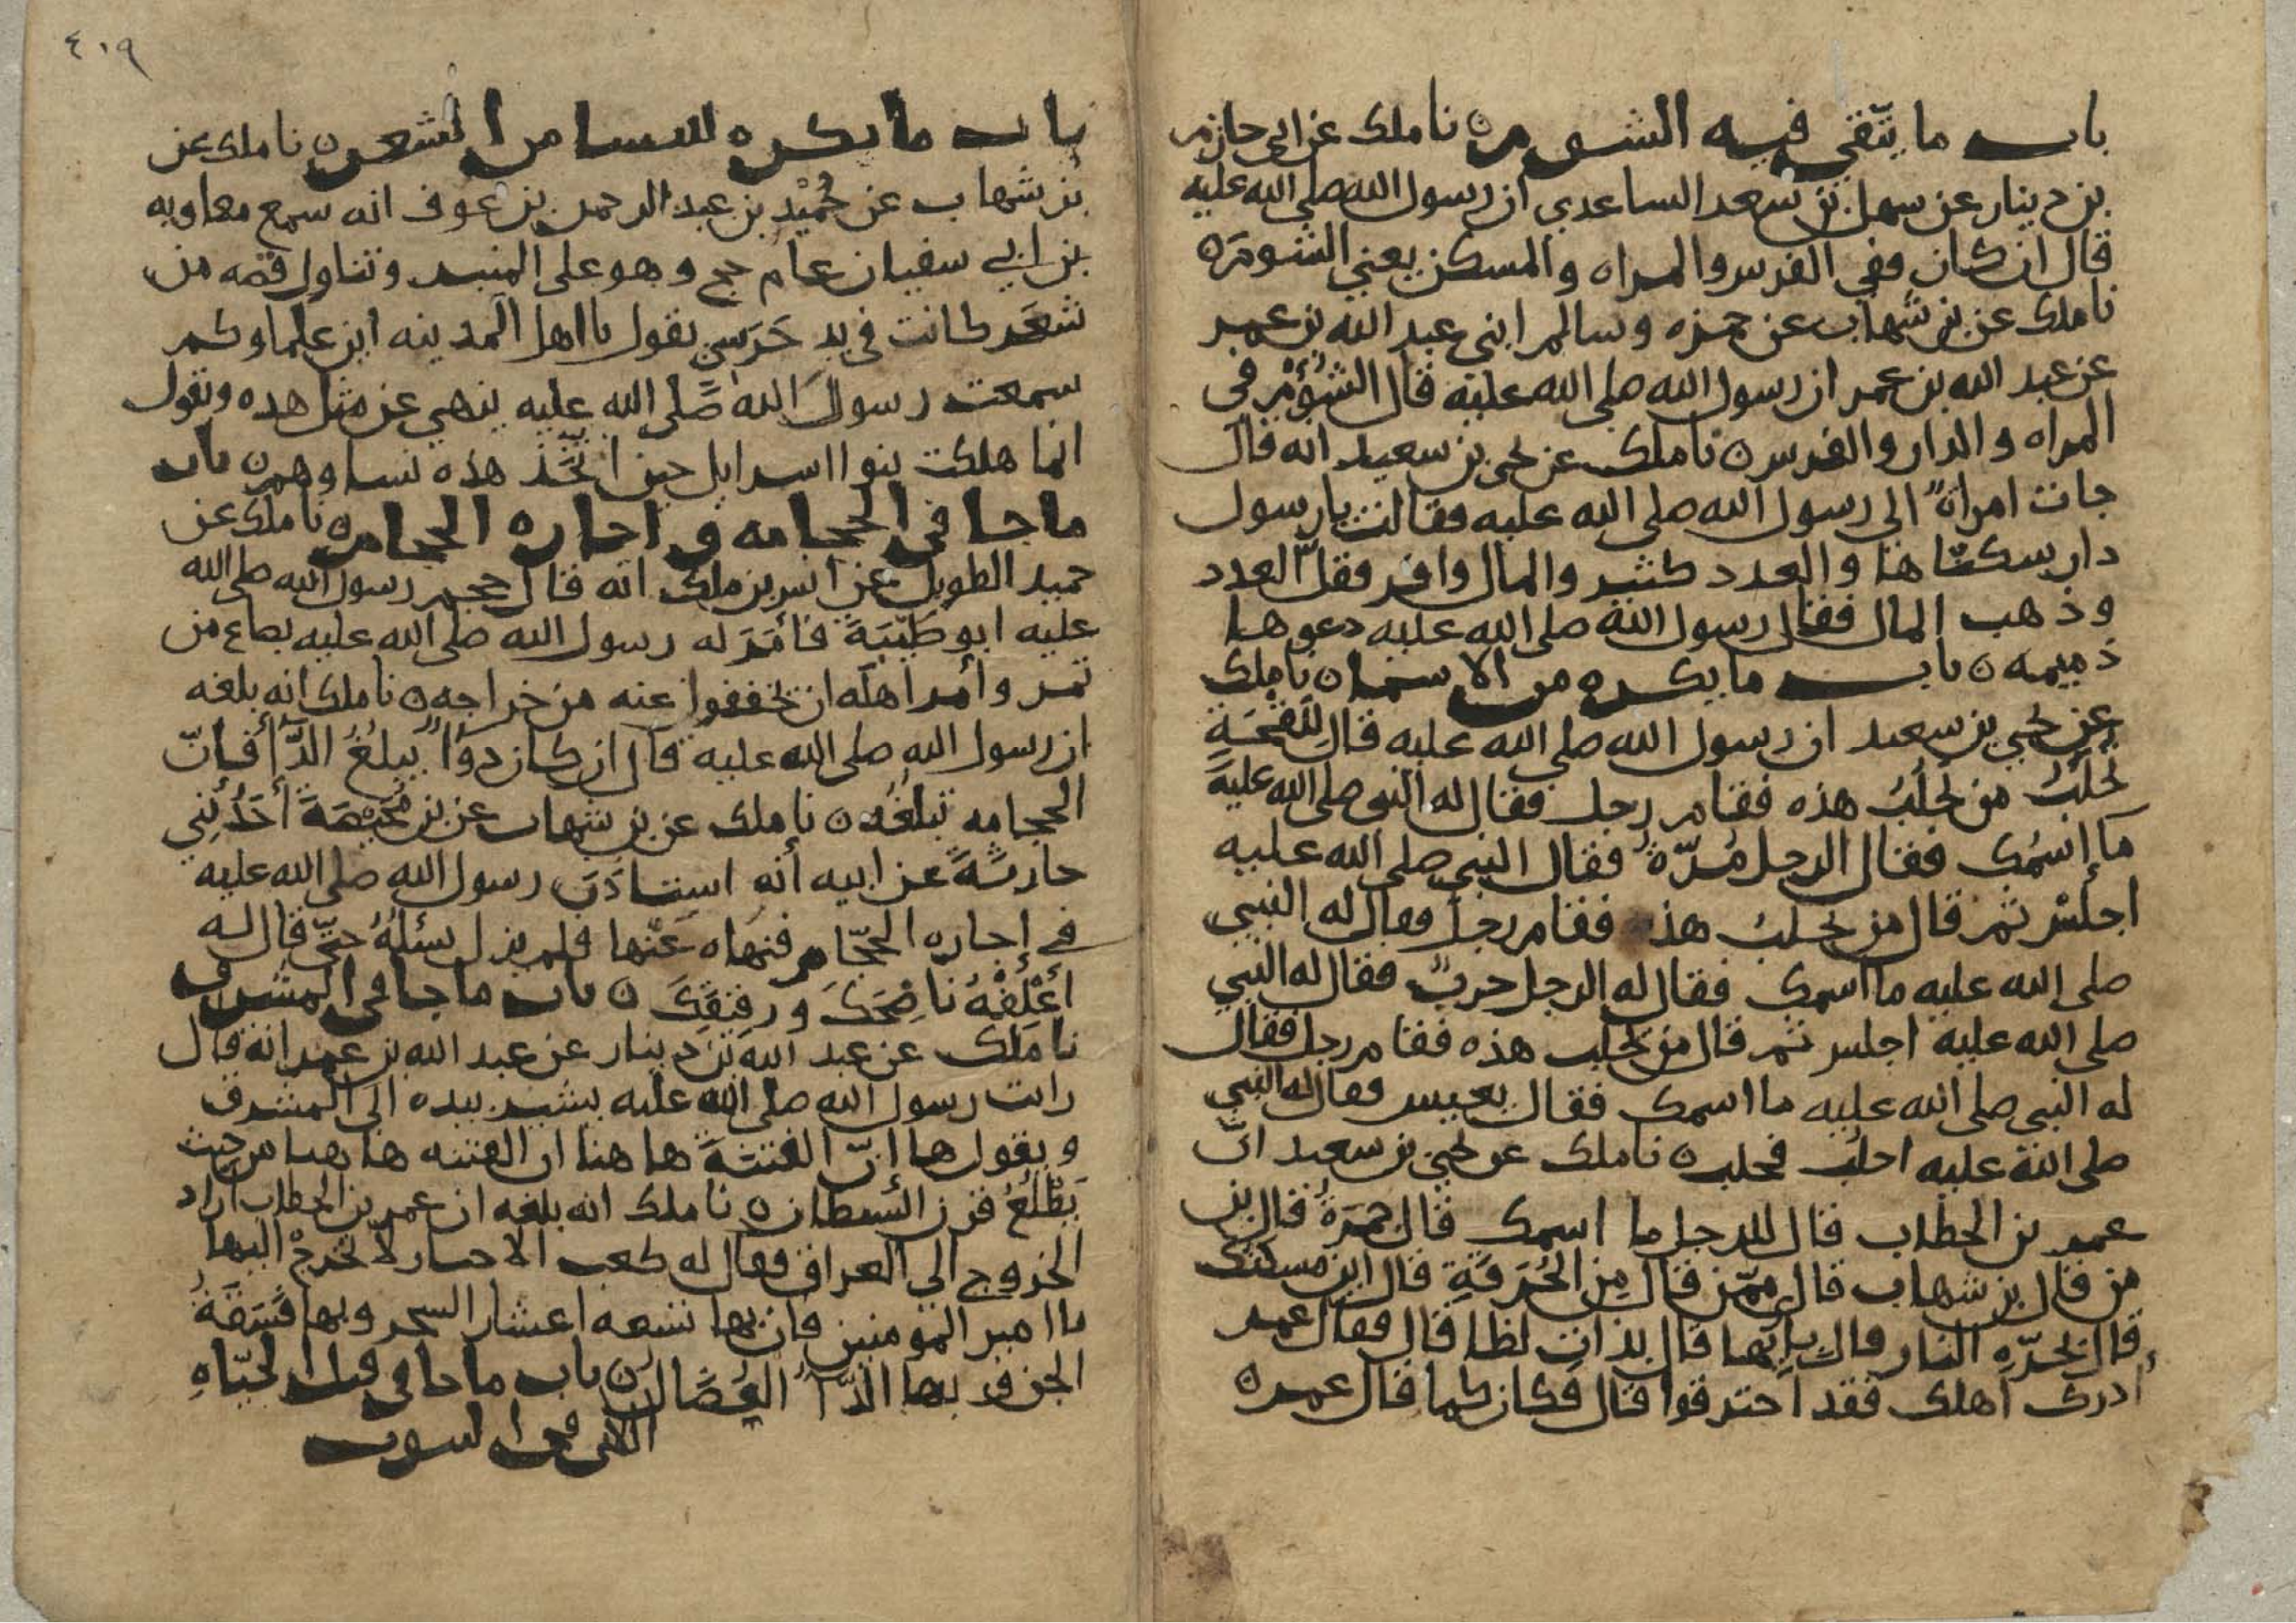 باب ما يتّقى فيه الشوم ○ نا ملك عن ابي حازم
بن دينار عن سهل بن سعد الساعدي ان رسول الله صلى الله عليه
قال ان كان ففي الفرس والمراه والمسكن يعني الشوم ○
نا ملك عن بن شهاب عن حمزه وسالم ابني عبد الله بن عمر
عن عبد الله بن عمر ان رسول الله صلى الله عليه قال الشُؤْم في
المراه والدار والفرس ○ نا ملك عن يحيى بن سعيد انه قال
جات امراةً الى رسول الله صلى الله عليه فقالت يا رسول
دار سكنّاها والعدد كثير والمال وافر فقلّ العدد
وذهب المال فقال رسول الله صلى الله عليه دعوها
ذميمه ○ باب ما يكره من الاسما ○ نا ملك
عن يحيى بن سعيد ان رسول الله صلى الله عليه قال لِلَقْحَةٍ
تُحلَبُ من يَحلُبُ هذه فقام رجل فقال له النبي صلى الله عليه
ما إسمُك فقال الرجل مُرّةُ فقال النبي صلى الله عليه
اجلسْ ثم قال من يحلبُ هذه فقام رجل فقال له النبي
صلى الله عليه ما اسمك فقال له الرجل حربٌ فقال له النبي
صلى الله عليه اجلس ثم قال من يحلب هذه فقام رجل فقال
له النبي صلى الله عليه ما اسمك فقال يعيس فقال له النبي
صلى الله عليه احلُب فحلب ○ نا ملك عن يحيى بن سعيد انّ
عمر بن الخطاب قال للرجل ما اسمك قال جمرةُ قال بن
من قال بن شهاب قال ممّن قال مِن الحُرَقَةِ قال اين مسكنك
قال بحرّهِ النار قال بايّها قال بذات لظا قال فقال عمر
أدرك اهلك فقد احترقوا قال فكان كما قال عمر ○
٤٠٩
باب ما يكره للنسا من الشعر ○ نا ملك عن
بن شهاب عن حُمَيْد بن عبد الرحمن بن عوف انه سمع معاويه
بن ابي سفيان عام حج وهو على المنبر وتناول قصه من
شعَر كانت في يد حَرَسي يقول يا اهل المدينه اين علماوكم
سمعت رسول الله صلى الله عليه ينهى عن مثل هذه ويقول
انما هلكت بنوا اسرايل حين اتّخَذ هذه نساوهم ○ باب
ما جا في الحجامه و اجاره الحجام ○ نا ملك عن
حميد الطويل عن انس بن ملك انه قال حجم رسول الله صلى الله
عليه ابو طَيْبَةَ فأمَرَ له رسول الله صلى الله عليه بصاع من
تمر وأمر اهله ان يخففوا عنه من خراجه ○ نا ملك انه بلغه
ان رسول الله صلى الله عليه قال ان كان دوًا يبلغُ الدّأ فانّ
الحجامه تبلغُه ○ نا ملك عن بن شهاب عن بن مُحَيْصَةَ أحَدُ بني
حارثةَ عن ابيه أنه استاذن رسول الله صلى الله عليه
في إجاره الحجّام فنهاه عَنْها فلم يزل يسئلهُ حتّى قال له
أَعْلِفْهُ نَاضِحَكَ ورقيقكَ ○ باب ما جا في المشرق
نا ملك عن عبد الله بن دينار عن عبد الله بن عمر انه قال
رايت رسول الله صلى الله عليه يشير بيده الى المشرق
ويقول ها إنّ الفتنةَ ها هنا ان الفتنه ها هنا من حيث
يَطْلُعُ قرن الشيطان ○ نا ملك انه بلغه ان عمر بن الخطاب اراد
الخروج الى العراق فقال له كعب الاحبار لا تخرجْ اليها
يا امير المومنين فان بها تسعه اعشار السحر وبها فَسَقَةُ
الجن وبها الدّأ العُضال ○ باب ما جا في قتل الحيّاهِ
التي في البيوت